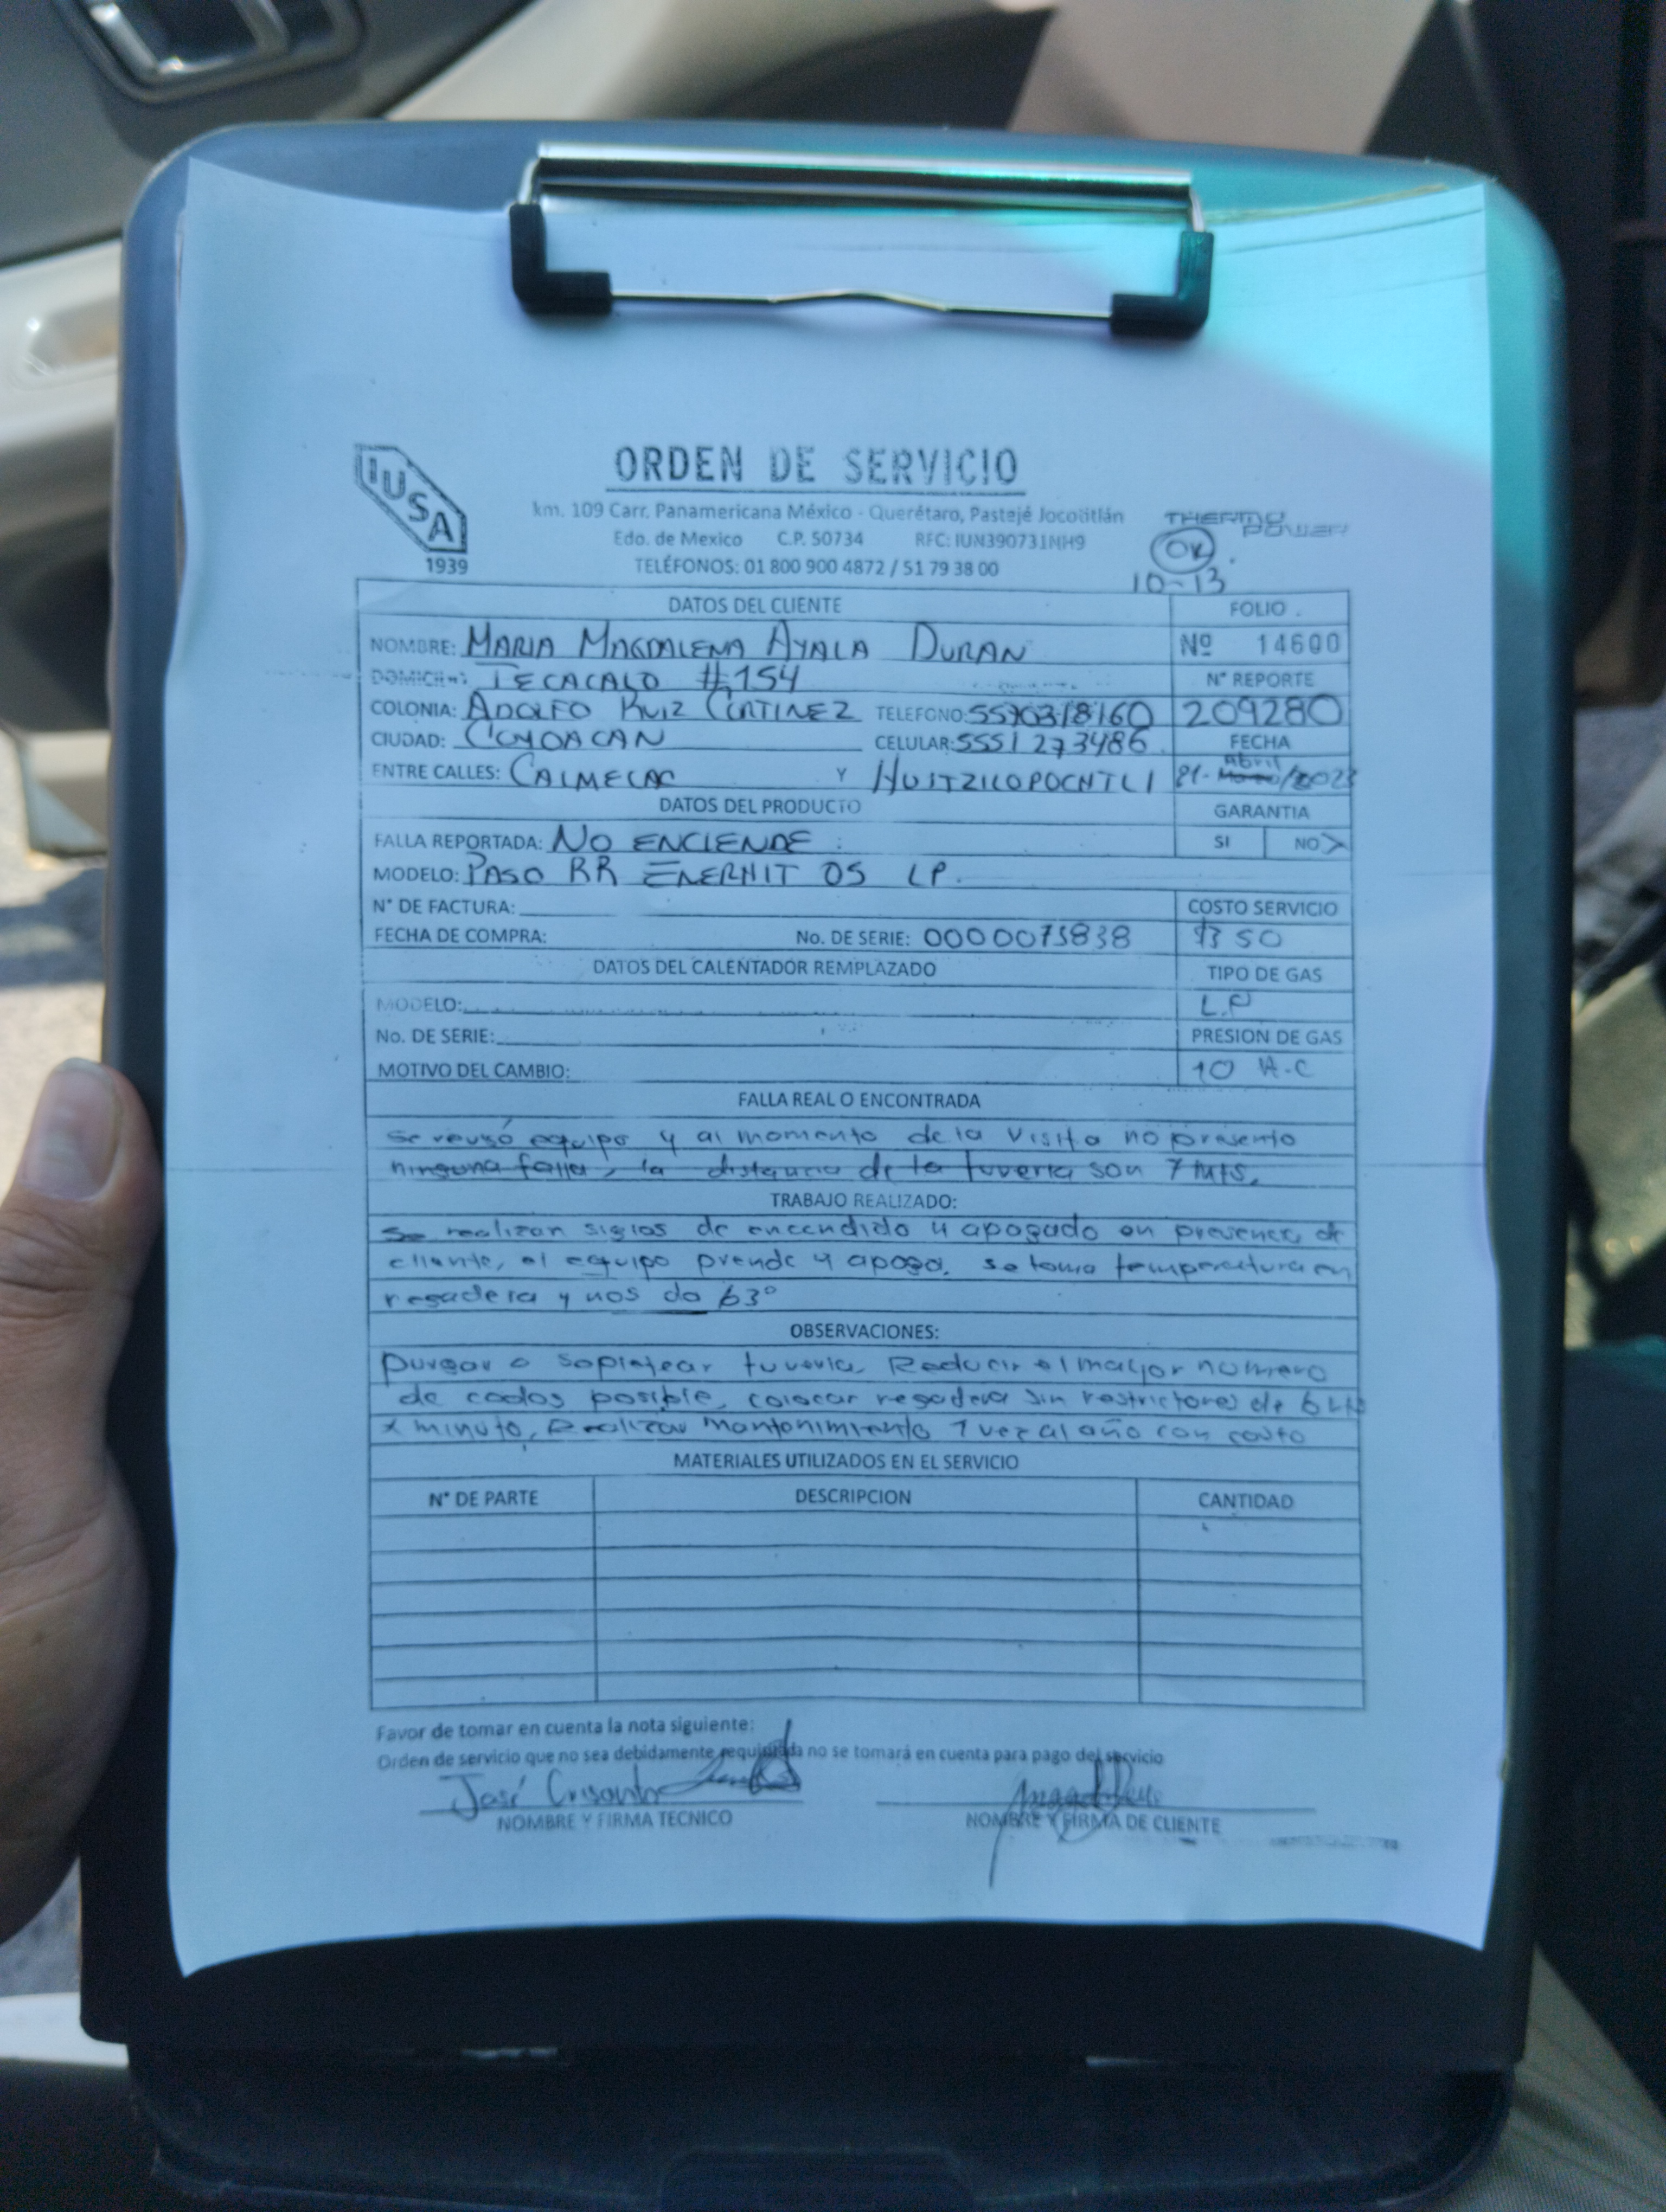 IUSA
1939
ORDEN DE SERVICIO
km. 109 Carr. Panamericana México - Querétaro, Pastejé Jocotitlán
Edo. de Mexico C.P. 50734 RFC: IUN390731NH9
TELÉFONOS: 01 800 900 4872 / 51 79 38 00
THERMO POWER
OK
10-13
DATOS DEL CLIENTE FOLIO
NOMBRE: MARIA MAGDALENA AYALA DURAN Nº 14600
DOMICILIO: TECACALO #154 N° REPORTE
COLONIA: ADOLFO RUIZ CORTINEZ TELEFONO: 5570318160 209280
CIUDAD: COYOACAN CELULAR: 5551273486 FECHA
ENTRE CALLES: CALMECAC Y HUITZILOPOCHTLI 21-Abril/2023
DATOS DEL PRODUCTO GARANTIA
FALLA REPORTADA: NO ENCIENDE SI NO
MODELO: PASO RR ENERHIT 05 LP.
N° DE FACTURA: COSTO SERVICIO
FECHA DE COMPRA: No. DE SERIE: 0000075838 $350
DATOS DEL CALENTADOR REMPLAZADO TIPO DE GAS
MODELO: L.P
No. DE SERIE: PRESION DE GAS
MOTIVO DEL CAMBIO: 10 A.C
FALLA REAL O ENCONTRADA
se revisó equipo y al momento de la visita no presento
ninguna falla, la distancia de la tuveria son 7 mts.
TRABAJO REALIZADO:
se realizan siglos de encendido y apagado en presencia de
cliente, el equipo prende y apaga, se toma temperatura en
regadera y nos da 63°
OBSERVACIONES:
purgar o sopletear tuveria, Reducir el mayor numero
de codos posible, colocar regadera sin restrictores de 6 Lts
x minuto, Realizar Mantenimiento 1 vez al año con costo
MATERIALES UTILIZADOS EN EL SERVICIO
N° DE PARTE DESCRIPCION CANTIDAD
Favor de tomar en cuenta la nota siguiente:
Orden de servicio que no sea debidamente requisitada no se tomará en cuenta para pago del servicio
José Crisanto
NOMBRE Y FIRMA TECNICO NOMBRE Y FIRMA DE CLIENTE